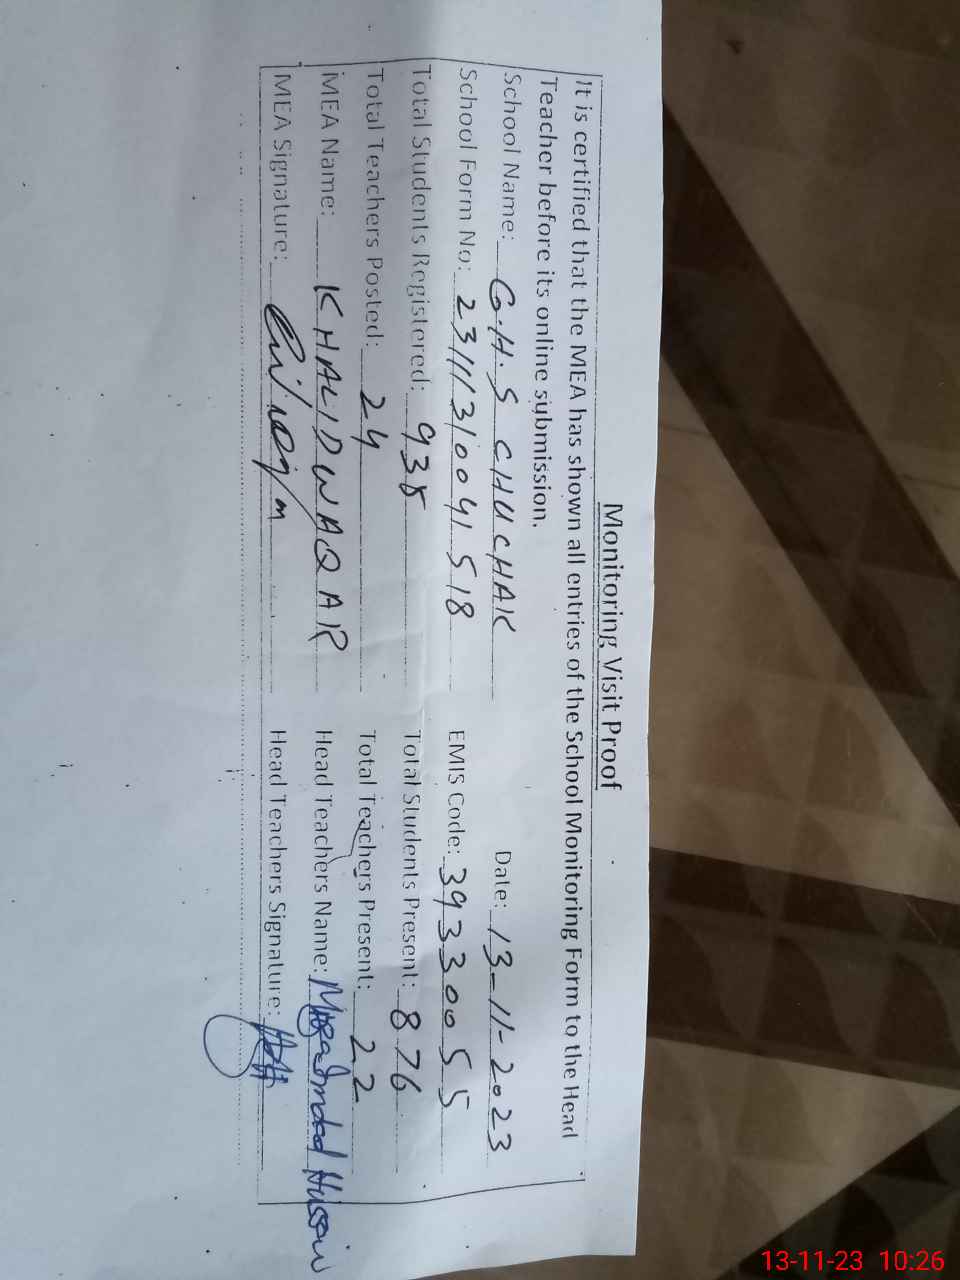 Monitoring Visit Proof
It is certified that the MEA has shown all entries of the School Monitoring Form to the Head
Teacher before its online submission.
School Name: G.H.S CHUCHAK Date: 13-11-2023
School Form No: 23111310041518 EMIS Code: 39330055
Total Students Registered: 938 Total Students Present: 876
Total Teachers Posted: 24 Total Teachers Present: 22
MEA Name: KHALID WAQAR Head Teachers Name: Hussain
MEA Signature: Head Teachers Signature:
13-11-23 10:26